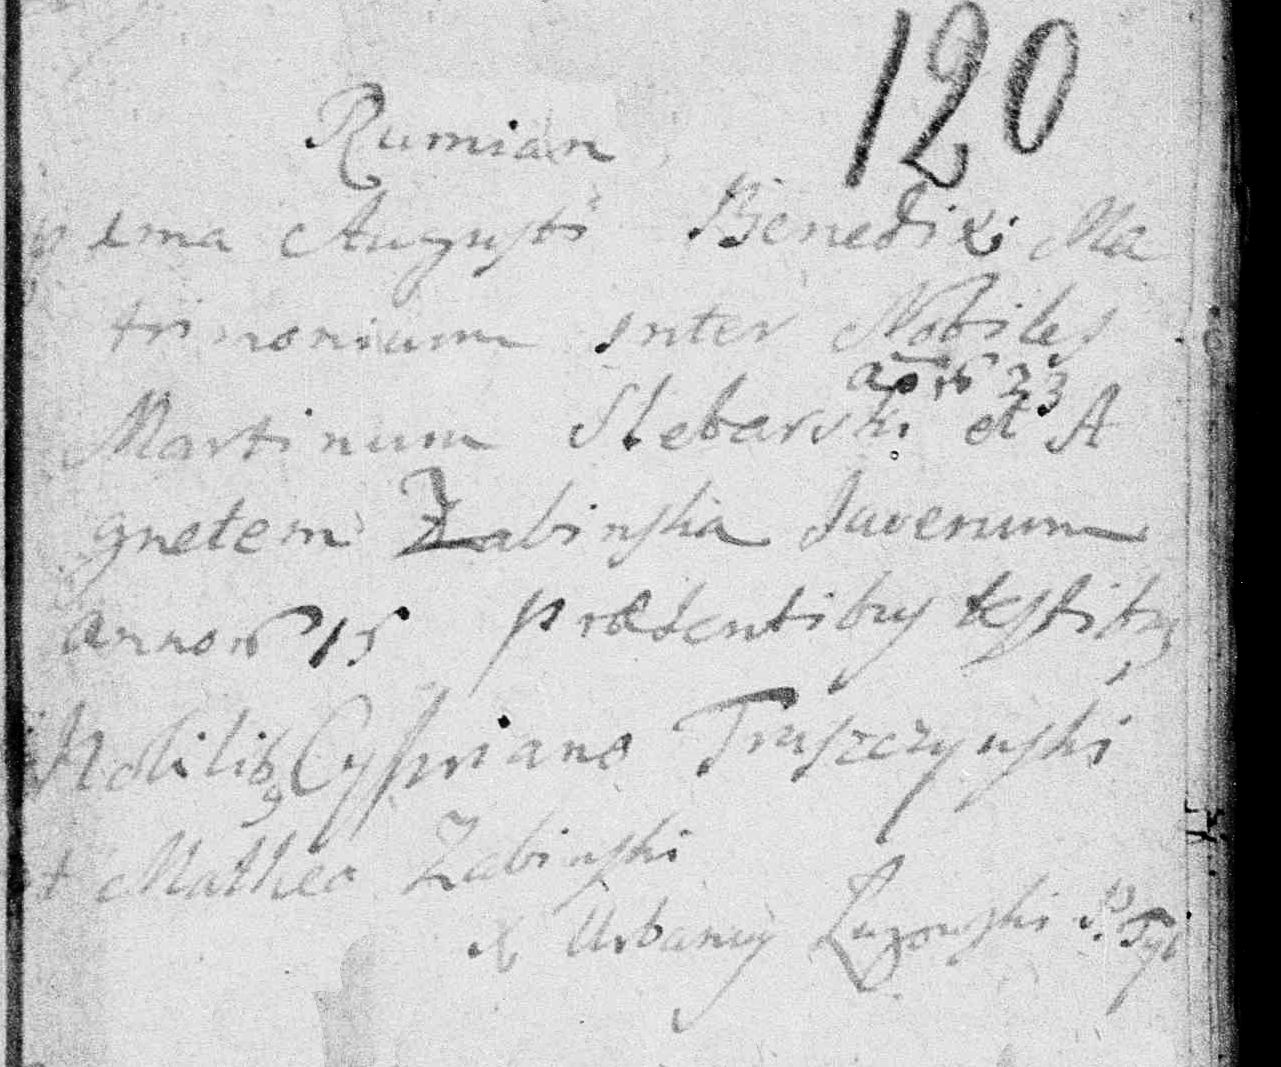 120
Rumian
ima Augusti Benedixi Ma
trimonium inter Nobiles
annor 23
Martinum Slebarski et A
gnetem Żabinska Juvenum
annor 15 præsentibus testibus
Nobilib9 Cypriano Truszczynski
et Matheo Zabinski
X Urbanus Łuzowski